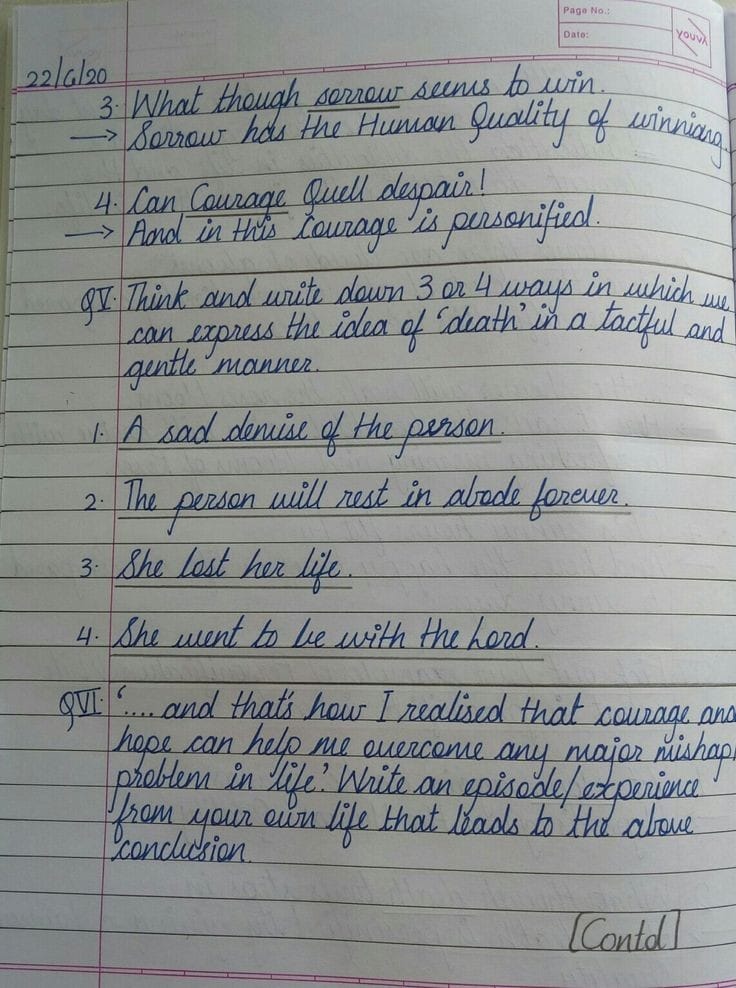 Page No.:
Date:
YOUVA
22/6/20
3. What though sorrow seems to win.
→ Sorrow has the Human Quality of winniang.
4. Can Courage Quell despair!
→ And in this Courage is personified.
QV. Think and write down 3 or 4 ways in which we
can express the idea of 'death' in a tactful and
gentle manner.
1. A sad demise of the person.
2. The person will rest in abode forever.
3. She lost her life.
4. She went to be with the Lord.
QVI. '.... and that's how I realised that courage and
hope can help me overcome any major mishap/
problem in life.' Write an episode/experience
from your own life that leads to the above
conclusion.
[Contd]